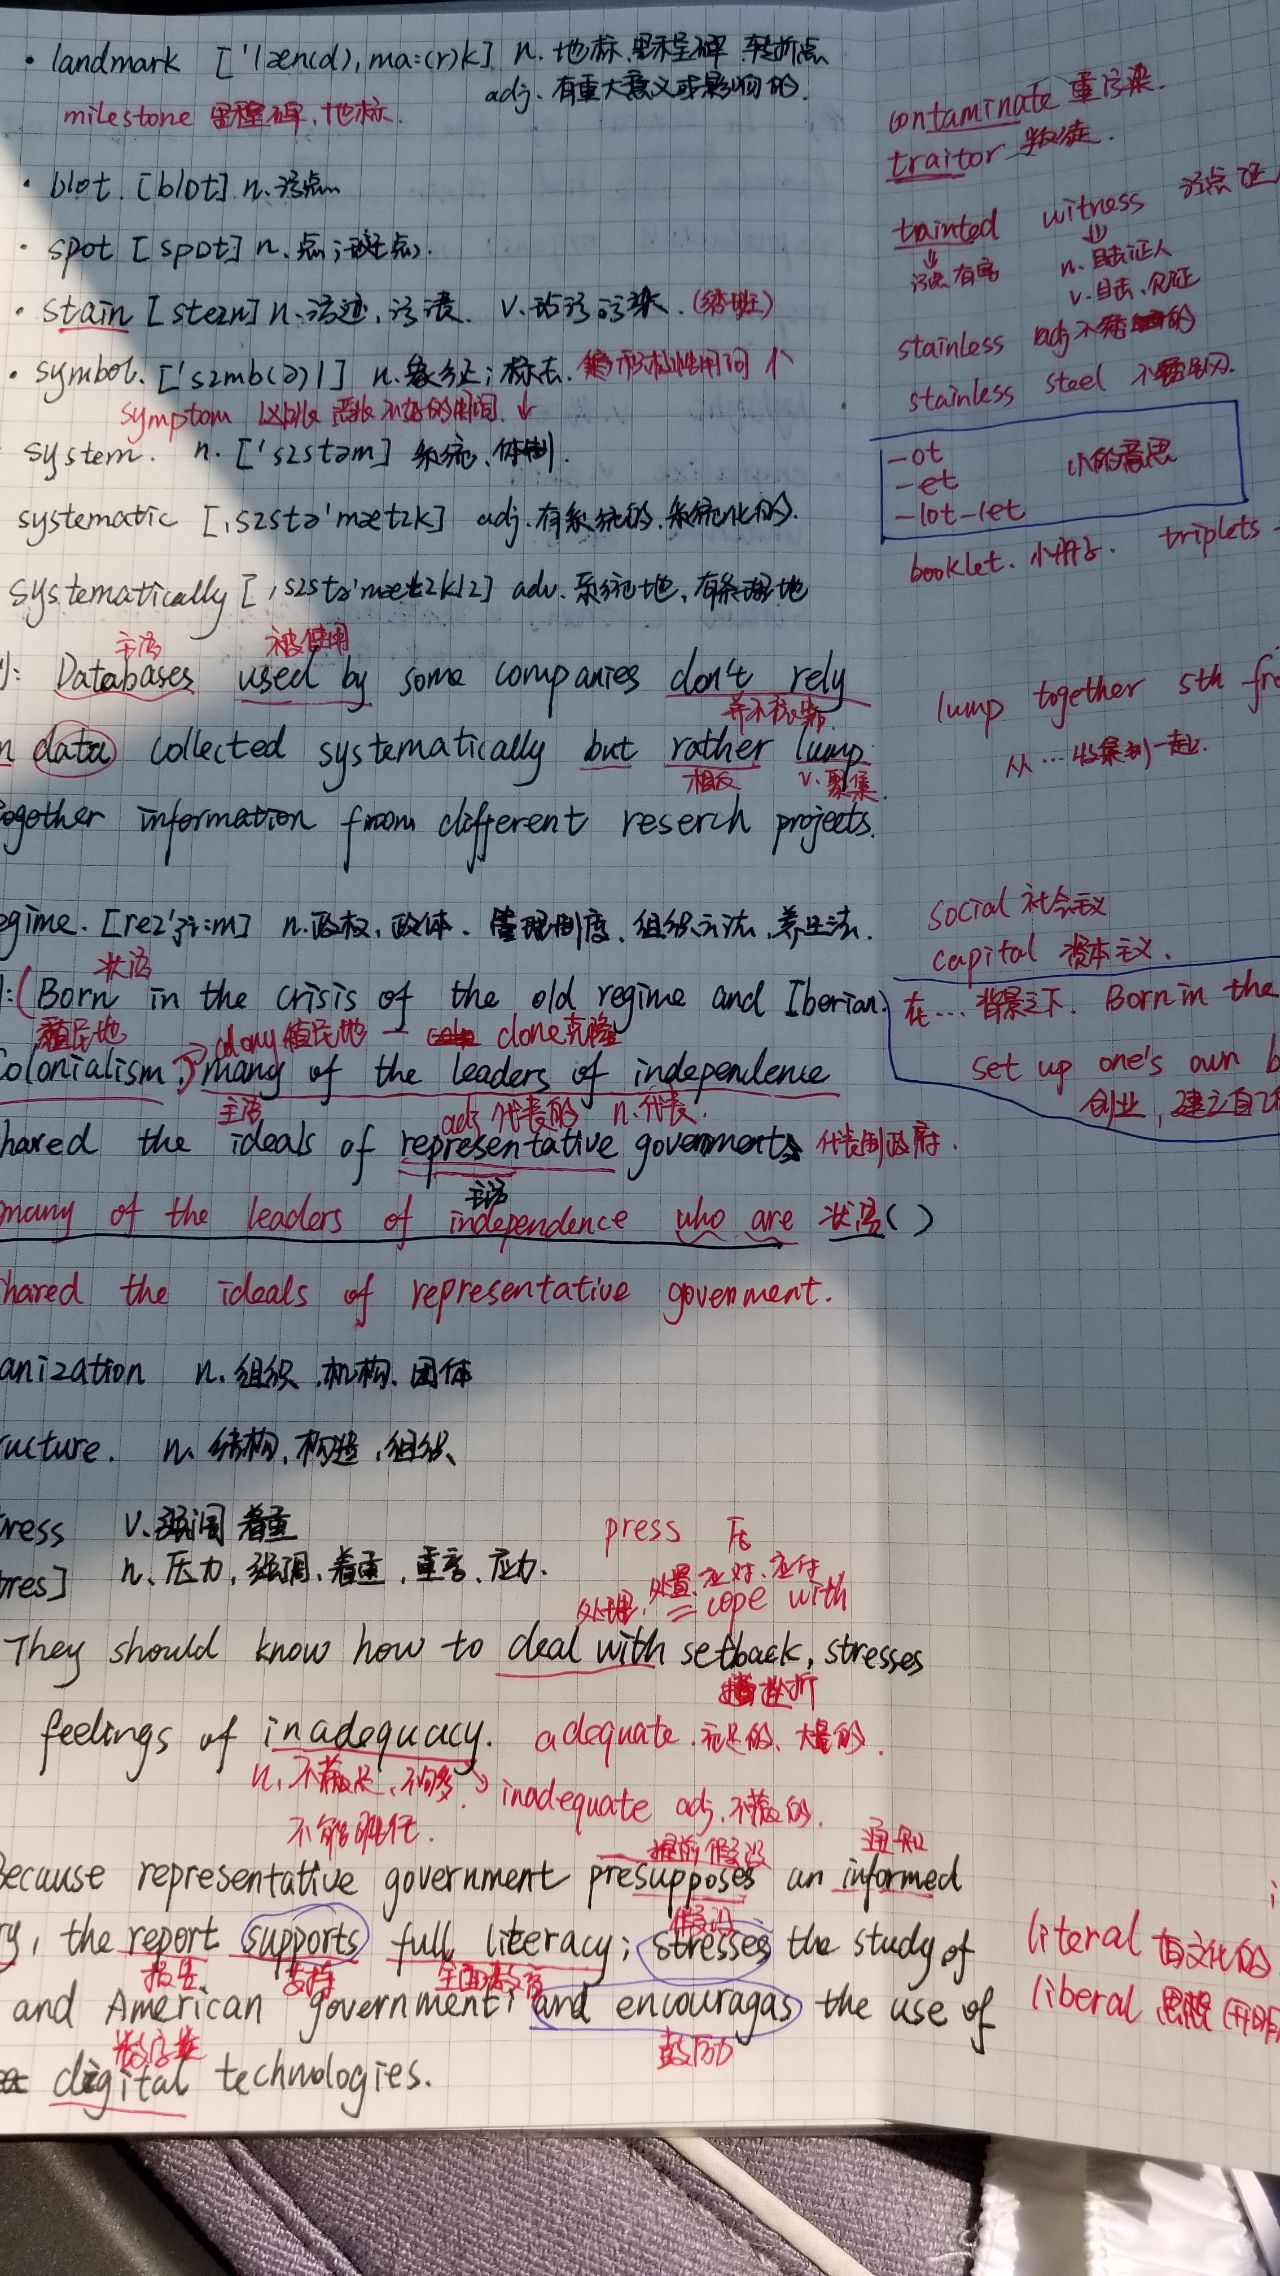 · landmark ['læn(d),ma:(r)k] n. 地标.里程碑 转折点
adj. 有重大意义或影响的.
milestone 里程碑.地标.
· blot. [blɒt] n.污点
· spot [spɒt] n.点;斑点.
· stain [steɪn] n.污迹,污渍. v.玷污污染.
· symbol. ['sɪmb(ə)l] n.象征;标志.
symptom ↓
system. n. ['sɪstəm] 系统.体制.
systematic [,sɪstə'mætɪk] adj.有系统的.系统化的.
systematically [,sɪstə'mætɪklɪ] adv.系统地、有条理地
主语 被使用
Databases used by some companies don't rely
data collected systematically but rather lump
相反 v.聚集.
ogether information from different reserch projects.
egime. [reɪ'ʒi:m] n.政权,政体.管理制度.组织方法.养生法.
状语
(Born in the crisis of the old regime and Iberian)
殖民地 colony 殖民地 — clone克隆
olonialism, many of the leaders of independence
主语 adj 代表的 n.代表.
hared the ideals of representative government 代表制政府.
主语
many of the leaders of independence who are 状语( )
hared the ideals of representative govenment.
anization n.组织.机构.团体
ructure. n.结构,构造,组织、
ress v.强调 着重
res] n、压力,强调、着重,重音、应力.
press 压
处理,处置,应对,应付
= cope with
They should know how to deal with setback, stresses
挫折
feelings of inadequacy. adequate.充足的、大量的.
n、不充足、不够多.
inadequate adj.
不能胜任.
提前假设 通知
Because representative government presupposes an informed
假设
y, the report supports full literacy; stresses the study of
报告 支持 全面
and American government; and encouragas the use of
鼓励
digital technologies.
contaminate 重污染.
traitor 叛徒.
tainted witness 污点证
↓ ↓
污点 有害 n.目击证人
v.目击、见证
stainless adj 不锈的
stainless steel 不锈钢.
-ot
-et 小的意思
-lot -let
booklet.小册子. triplets -
lump together sth fr
从…收集到一起.
social 社会主义
capital 资本主义.
在…背景之下. Born in the
set up one's own b
创业,建立自己
literal 有文化的
liberal 思想